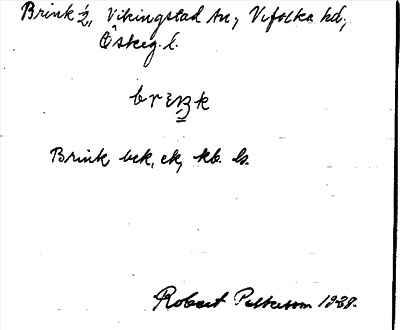 Brink 2, Vikingstad sn, Vifolka hd,
Östeg. l.
brıŋk
Brink bck, ek, kb. ls.
Robert Pettersson 1938.